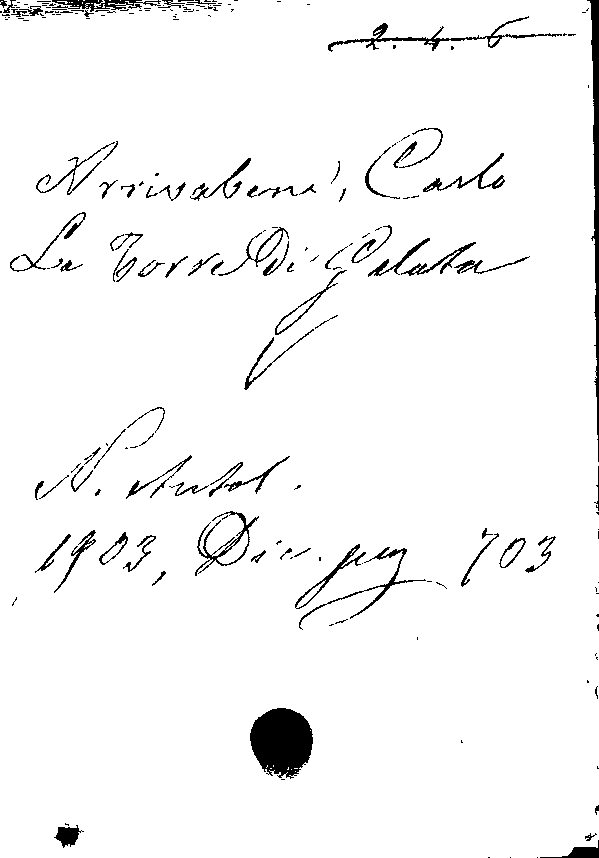 2. 4. 6
Arrivabene, Carlo
La Torre Di Galata
N. Antol.
1903, Dic. pag 703